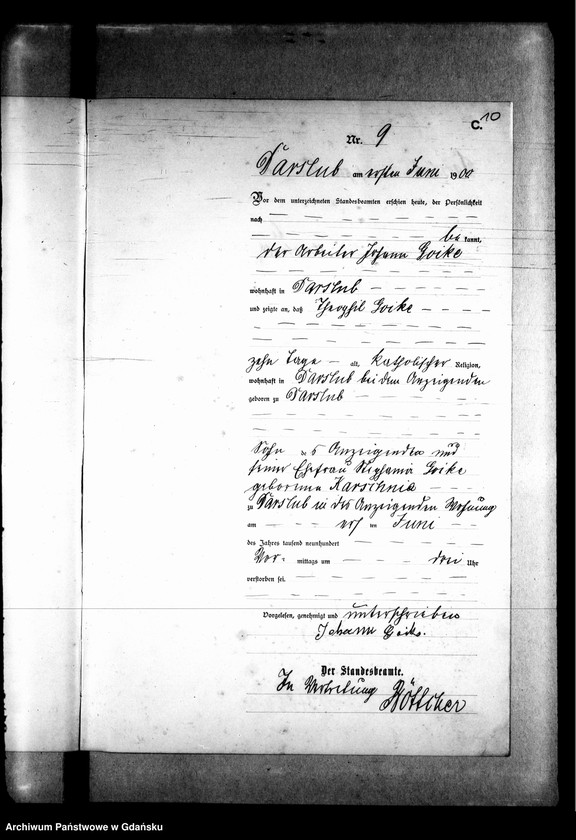 C. 10
Nr. 9
Darslub am ersten Juni 1900
Vor dem unterzeichneten Standesbeamten erschien heute, der Persönlichkeit
nach
bekannt,
der Arbeiter Johann Goike
wohnhaft in Darslub
und zeigte an, daß Theophil Goike
zehn Tage alt, katholischer Religion,
wohnhaft in Darslub bei dem Anzeigenden
geboren zu Darslub
Sohn des Anzeigenden und
seiner Ehefrau Goike
geborenen Karschnia
zu Darslub in des Anzeigenden Wohnung
am ersten Juni
des Jahres tausend neunhundert
Vormittags um drei Uhr
verstorben sei.
Vorgelesen, genehmigt und unterschrieben
Johann Goike.
Der Standesbeamte.
In Vertretung Böttcher
Archiwum Państwowe w Gdańsku